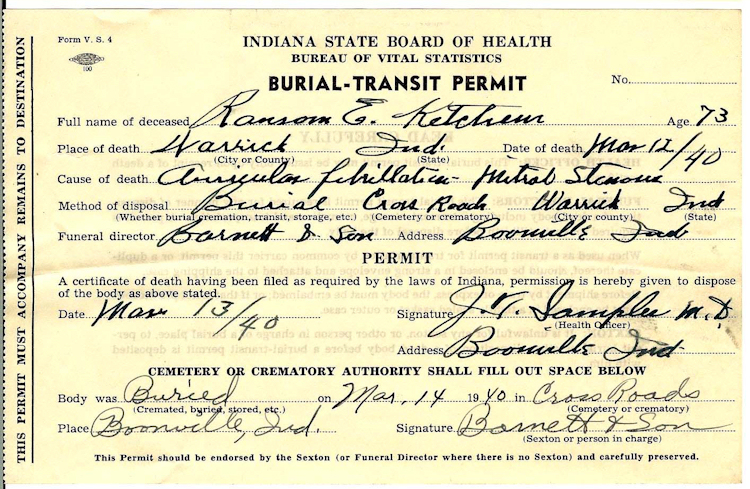 Form V. S. 4
100
INDIANA STATE BOARD OF HEALTH
BUREAU OF VITAL STATISTICS
BURIAL-TRANSIT PERMIT
No.
Full name of deceased Ransom E. Ketchem Age 73
Place of death Warrick Ind. Date of death Mar 12/40
(City or County) (State)
Cause of death Auricular fibrillation - Mitral Stenosis
Method of disposal Burial Cross Roads Warrick Ind
(Whether burial, cremation, transit, storage, etc.) (Cemetery or crematory) (City or county) (State)
Funeral director Barnett & Son Address Boonville Ind
PERMIT
A certificate of death having been filed as required by the laws of Indiana, permission is hereby given to dispose
of the body as above stated.
Date Mar 13/40 Signature J. T. Samples M.D
(Health Officer)
Address Boonville Ind
CEMETERY OR CREMATORY AUTHORITY SHALL FILL OUT SPACE BELOW
Body was Buried on Mar. 14 1940 in Cross Roads
(Cremated, buried, stored, etc.) (Cemetery or crematory)
Place Boonville, Ind. Signature Barnett & Son
(Sexton or person in charge)
This Permit should be endorsed by the Sexton (or Funeral Director where there is no Sexton) and carefully preserved.
THIS PERMIT MUST ACCOMPANY REMAINS TO DESTINATION